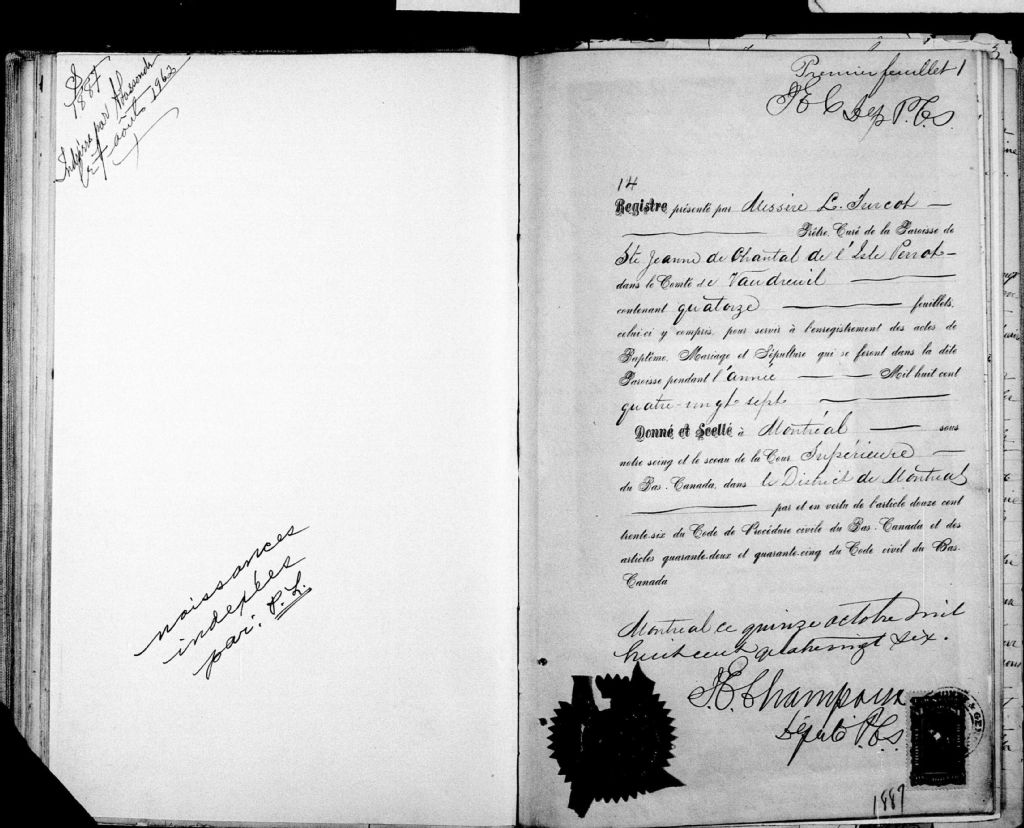 1887
Indexé par
août 1962
naissances
indexées
par: P. L.
Premier feuillet 1
J E C Dep P.C.S.
14
Registre présenté par Messire L. Turcot
Prêtre, Curé de la Paroisse de
Ste Jeanne de Chantal de l'Isle Perrot
dans le Comté de Vaudreuil
contenant quatorze feuillets,
celui-ci y compris, pour servir à l'enregistrement des actes de
Baptême, Mariage et Sépulture qui se feront dans la dite
Paroisse pendant l'année Mil huit cent
quatre-vingt sept
Donné et Scellé à Montréal sous
notre seing et le sceau de la Cour Supérieure
du Bas-Canada, dans le District de Montréal
par et en vertu de l'article douze cent
trente-six du Code de Procédure civile du Bas-Canada et des
articles quarante-deux et quarante-cinq du Code civil du Bas-
Canada
Montreal ce quinze octobre mil
huit cent quatrevingt six.
J. E. Champoux
Député P.C.S.
1887